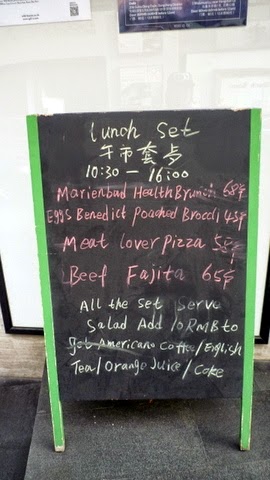 Lunch Set
午市套歺
10:30 — 16:00
Marienbad Health Brunch 68元
Eggs Benedict Poached Brocci 45元
Meat lover pizza 58元
Beef Fajita 65元
All the set serve
Salad Add 10RMB to
get Americano Coffee/English
Tea/Orange Juice/Coke